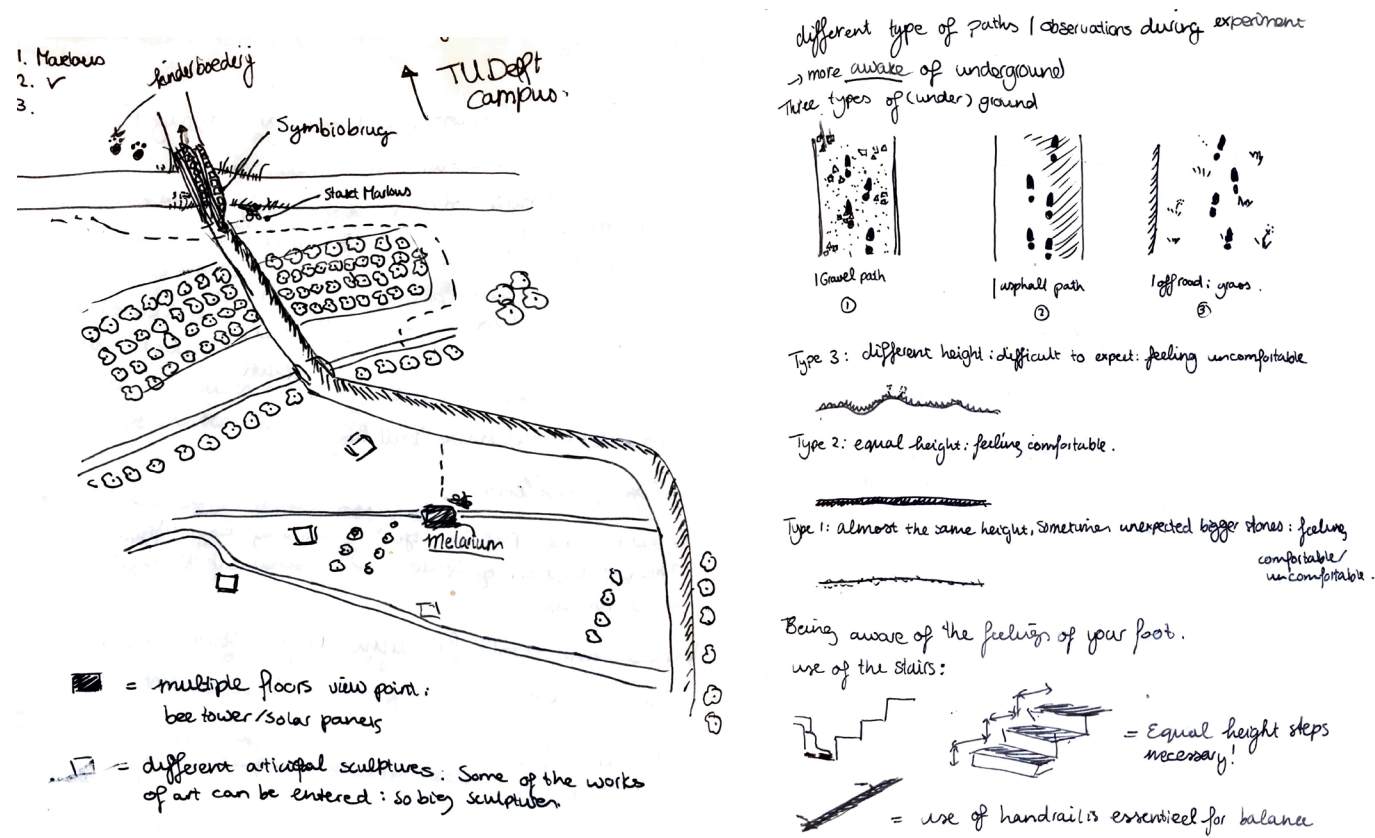 1. Marlous
2. ✓
3.
kinderboederij
TU Delft
campus.
Symbiobrug
Start Marlous
Melarium
= multiple floors view point:
bee tower/solar panels
= different articipal sculptures: Some of the works
of art can be entered: so big sculptures.
different type of paths / observations during experiment
→ more awake of underground
Three types of (under) ground
| Gravel path
①
| asphalt path
②
| offroad: grass.
③
Type 3: different height: difficult to expect: feeling uncomfortable
Type 2: equal height: feeling comfortable.
Type 1: almost the same height, sometimes unexpected bigger stones: feeling
comfortable/
uncomfortable.
Being aware of the feelings of your foot.
use of the stairs:
= Equal height steps
necessary!
= use of handrail is essentieel for balance